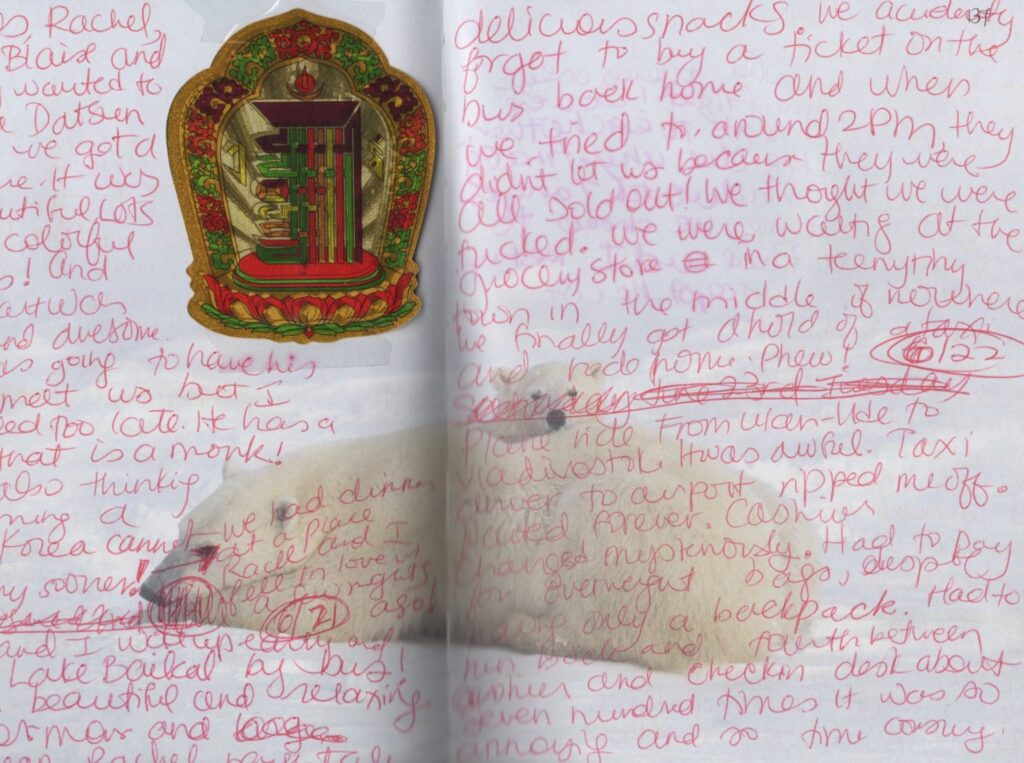 s Rachel,
Blaise and
wanted to
Datsun
we got a
me. It was
utiful Lots
colorful
s! And
art was
nd awesome.
as going to have his
meet us but I
ed too late. He has a
that is a monk!
also thinking
ning a
Korea cannot
ny sooner!
we had dinner
at a place
Rachel and I
fell in love w
a nights
ago!
6/21
and I woke up early and
Lake Baikal by bus!
beautiful and relaxing
or mar and
Rachel
139
delicious snacks. We acidently
forgot to buy a ticket on the
bus back home and when
we tried to, around 2PM, they
didnt let us because they were
all sold out! We thought we were
fucked. We were waiting at the
grocery store in a teenytiny
town in the middle of nowhere
We finally got ahold of a taxi
and rode home. Phew! 6/22
Plane ride from Ulan-Ude to
Vladivostok. It was awful. Taxi
driver to airport ripped me off.
Waited forever. Cashiers
changed mysteriously. Had to pay
for overweight bags, despite
having only a backpack. Had to
run back and fourth between
cashier and checkin desk about
seven hundred times it was so
annoying and so time consuming.